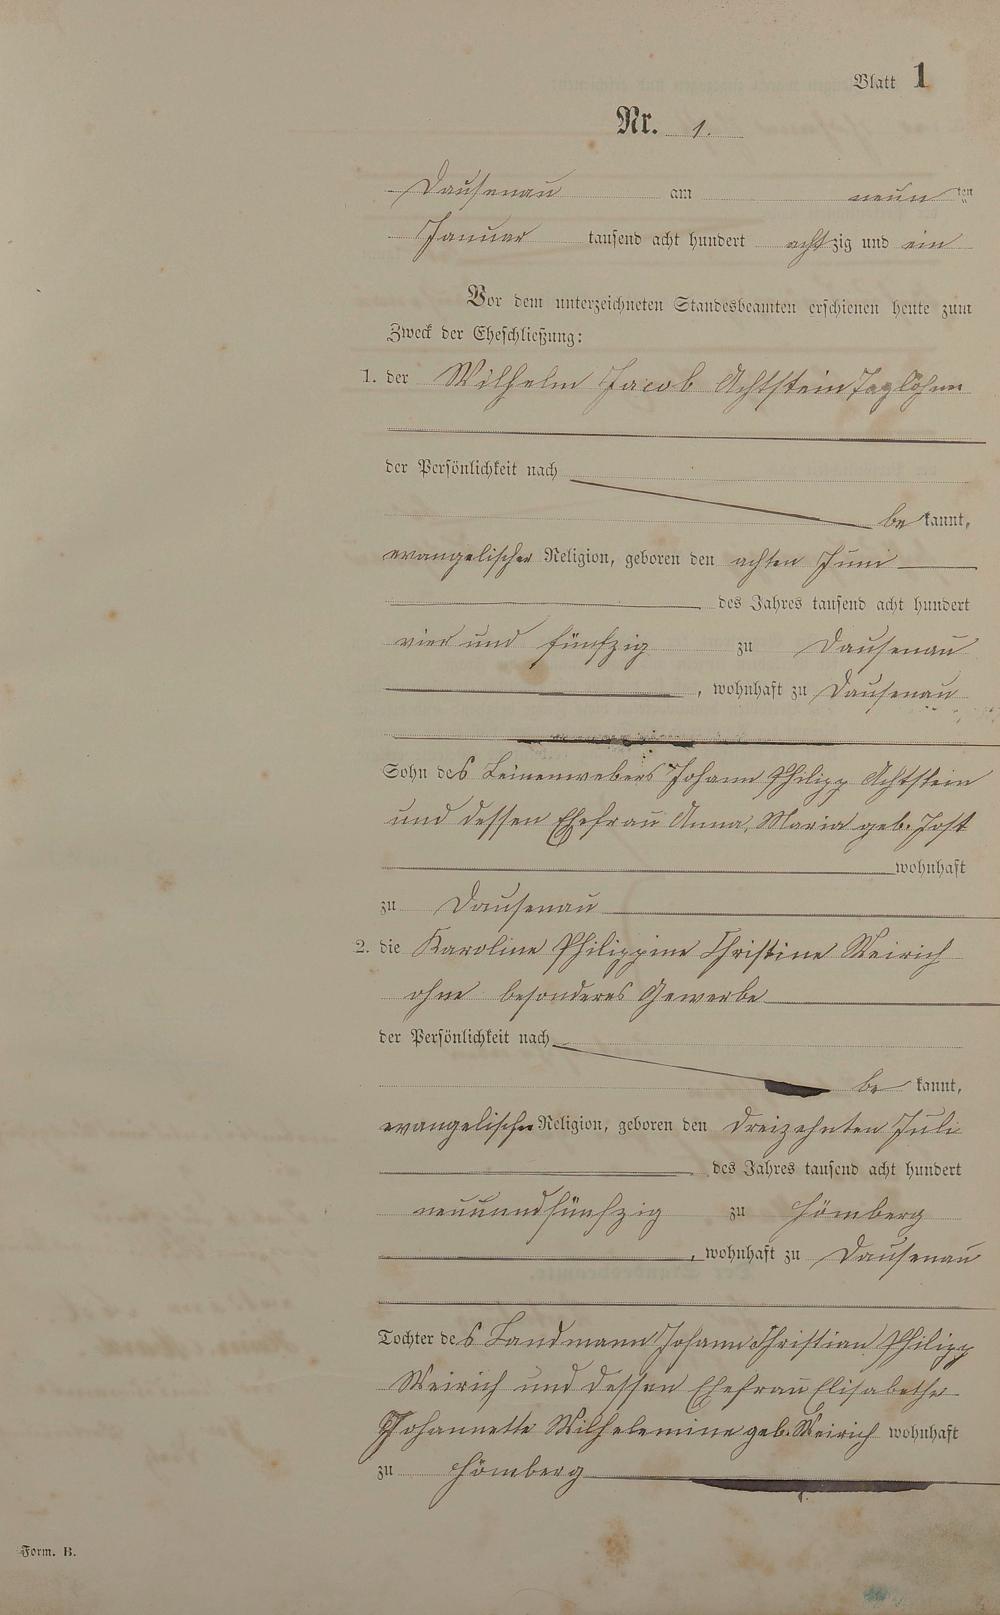 Blatt 1
Nr. 1.
Dausenau am neun ten
Januar tausend acht hundert achtzig und ein
Vor dem unterzeichneten Standesbeamten erschienen heute zum
Zweck der Eheschließung:
1. der Wilhelm Jacob Achtstein Taglöhner
der Persönlichkeit nach
be kannt,
evangelischer Religion, geboren den achten Juni
des Jahres tausend acht hundert
vier und fünfzig zu Dausenau
, wohnhaft zu Dausenau
Sohn des Leinenwebers Johann Philipp Achtstein
und dessen Ehefrau Anna Maria geb. Jost
wohnhaft
zu Dausenau
2. die Karoline Philippine Christine Weirich
ohne besonderes Gewerbe
der Persönlichkeit nach
be kannt,
evangelischer Religion, geboren den dreizehnten Juli
des Jahres tausend acht hundert
neunundfünfzig zu Hömberg
, wohnhaft zu Dausenau
Tochter des Landmann Johann Christian Philipp
Weirich und dessen Ehefrau Elisabethe
Johannette Wilhelmine geb. Weirich wohnhaft
zu Hömberg
Form. B.